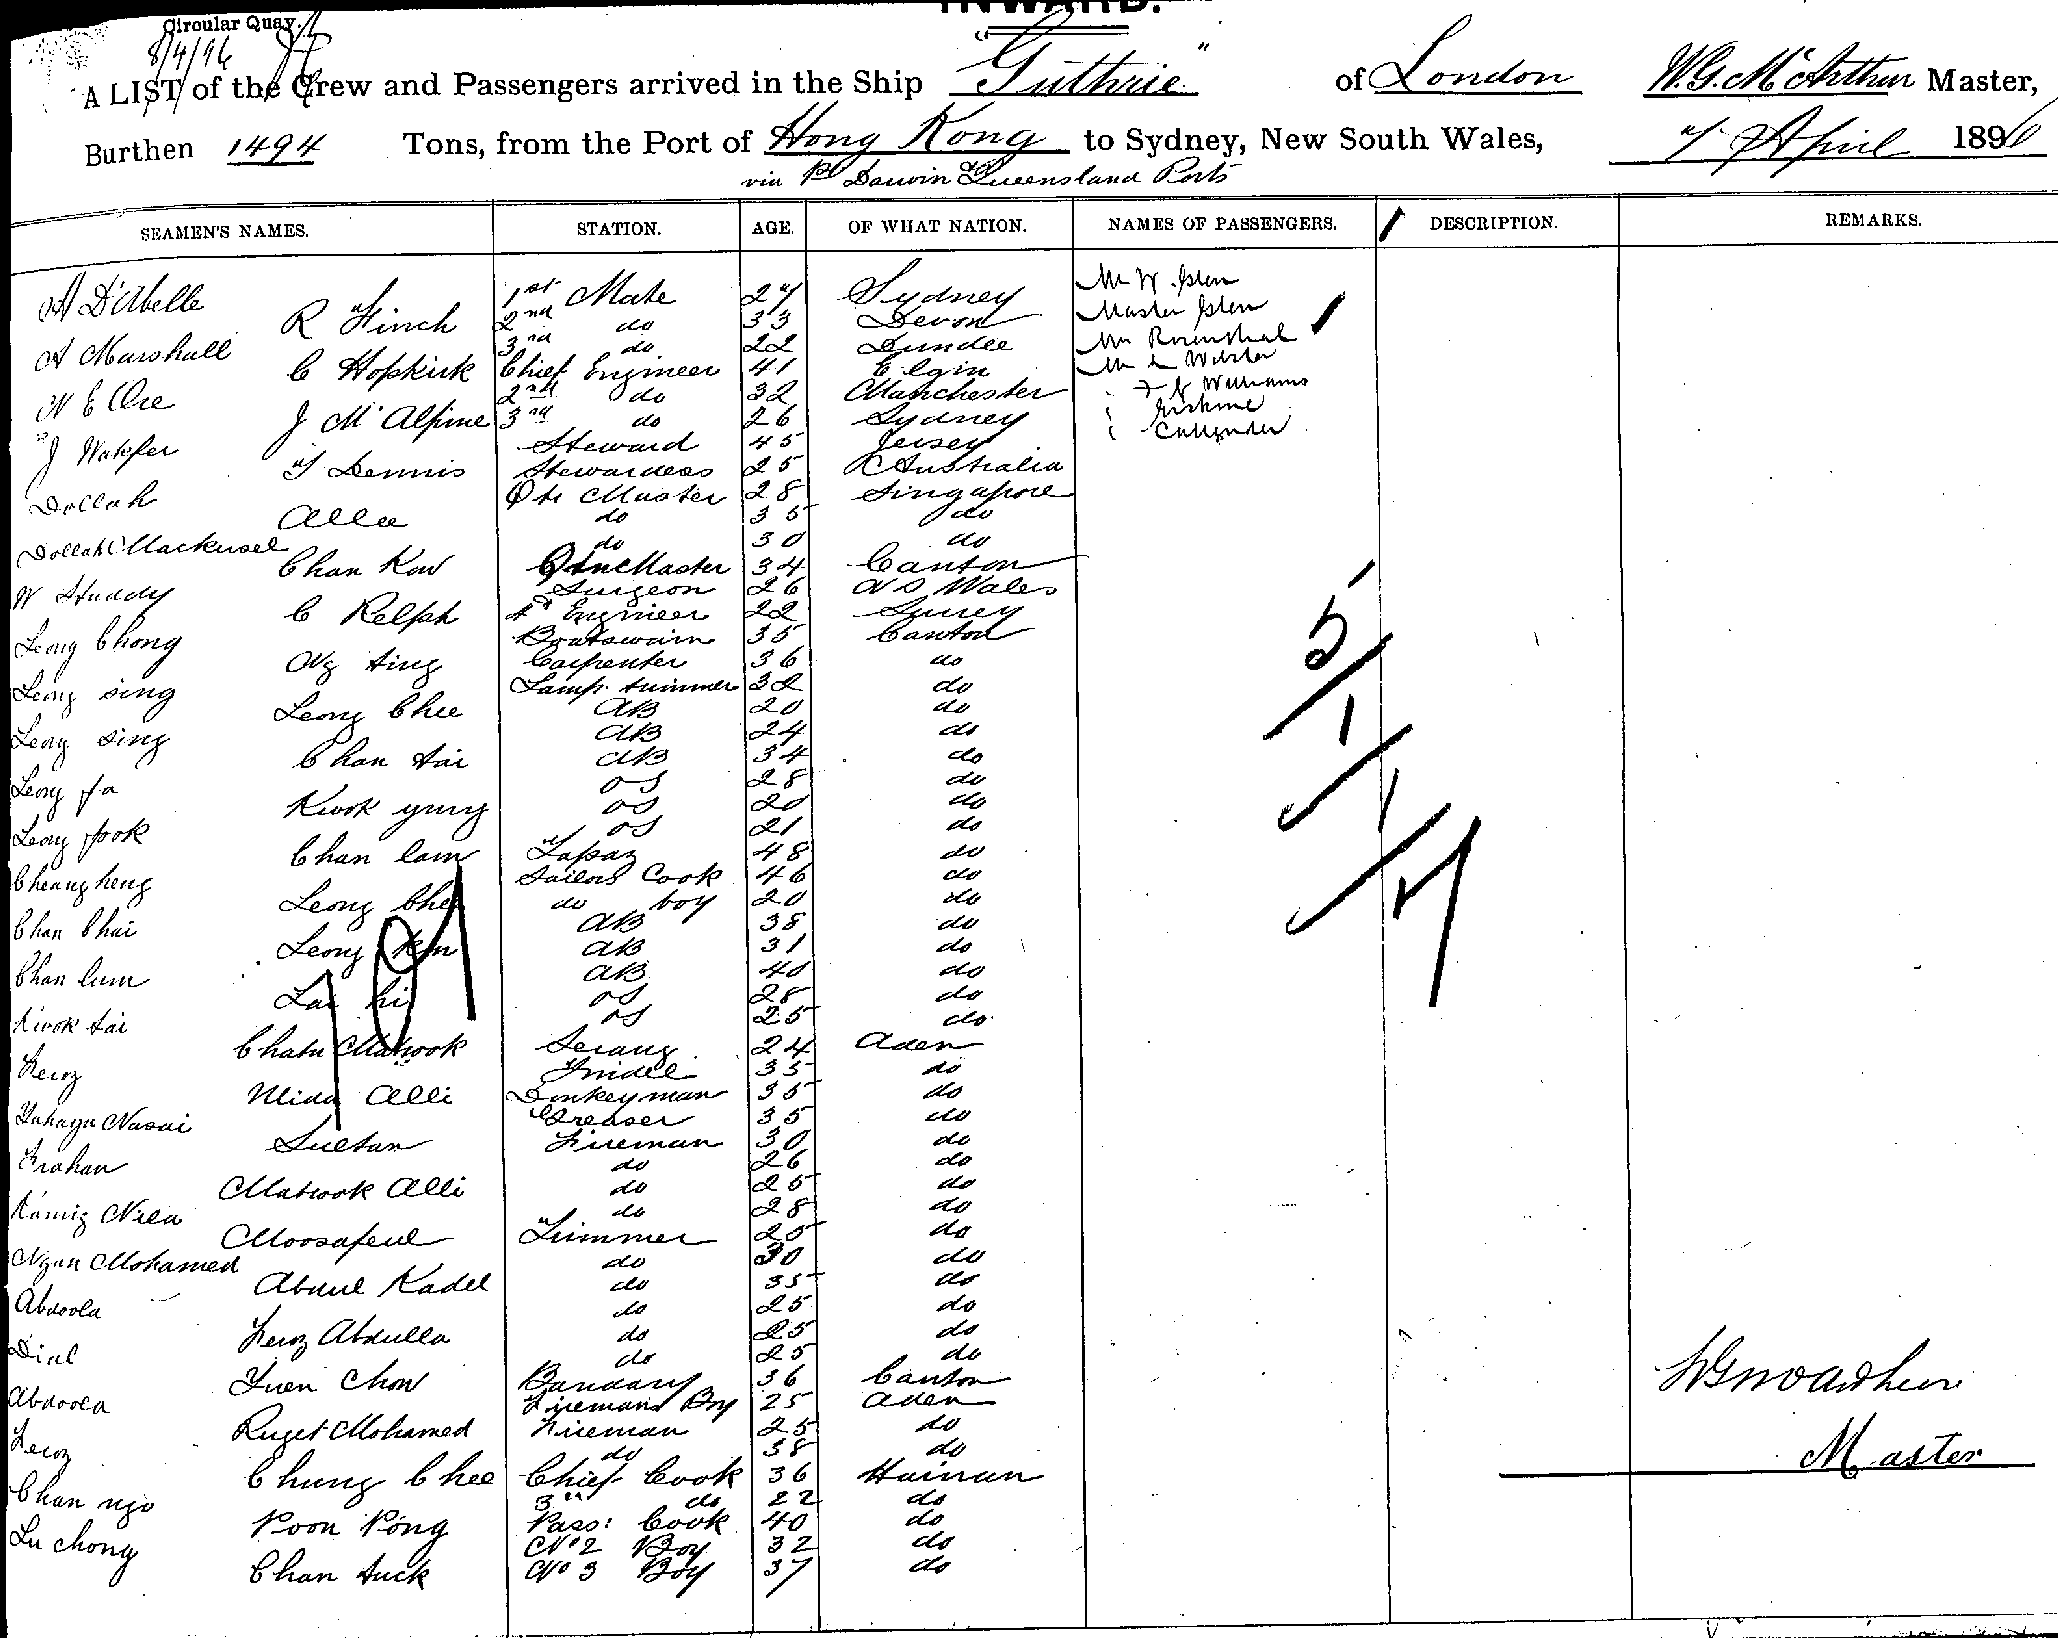 INWARD.
Circular Quay.
8/4/96
A LIST of the Crew and Passengers arrived in the Ship "Guthrie" of London W.G. McArthur Master,
Burthen 1494 Tons, from the Port of Hong Kong to Sydney, New South Wales, 7 April 1896
via Pt Darwin & Queensland Ports
SEAMEN'S NAMES. STATION. AGE. OF WHAT NATION. NAMES OF PASSENGERS. DESCRIPTION. REMARKS.
A D'Abelle 1st Mate 27 Sydney Mr W
R Finch 2nd do 33 Devon Master
A Marshall 3rd do 22 Dundee Mr Rosenthal
C Hopkirk Chief Engineer 41 Elgin Mr
W E Ore 2nd do 32 Manchester Williams
J McAlpine 3rd do 26 Sydney Erskine
J Steward 45 Jersey Callender
T Dennis Stewardess 25 Australia
Dollah Qtr Master 28 Singapore
Allee do 35 do
Dollah do 30 do
Chan Kow Qtr Master 34 Canton
W Studdy Surgeon 26 N S Wales
C Relph 4th Engineer 22 Surrey
Leong Chong Boatswain 35 Canton
Ng ting Carpenter 36 do
Leong sing Lamp trimmer 32 do
Leong Chee AB 20 do
Leong sing AB 24 do
Chan tai AB 34 do
Leong fa OS 28 do
Kwok yung OS 20 do
Leong fook OS 21 do
Chan lam 48 do
Cheang heng Sailors Cook 46 do
Leong Chee do boy 20 do
Chan Chai AB 38 do
Leong AB 31 do
Chan lum AB 40 do
OS 28 do
Kwok tai OS 25 do
Mabrook Serang 24 Aden
Feroz Tindel 35 do
Alli Donkeyman 35 do
Greaser 35 do
Sultan Fireman 30 do
Frahan do 26 do
Mabrook Alli do 25 do
do 28 do
Trimmer 25 do
Mohamed do 30 do
Abdul Kadel do 35 do
Abdoola do 25 do
Feroz Abdulla do 25 do
do 25 do
Yuen Chow Bandary 36 Canton
Abdoola Firemans Boy 25 Aden
Mohamed Fireman 25 do
Feroz do 38 do
Chung Chee Chief Cook 36 Hainan
Chan ngo 3rd do 22 do
Poon Pong Pass: Cook 40 do
Lu chong No 2 Boy 32 do
Chan tuck No 3 Boy 37 do
5/1/1/7
101
WG McArthur
Master